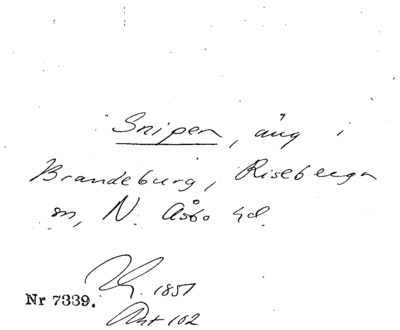 Snipen, äng i
Brandeburg, Riseberga
sn, N. Åsbo hd.
1851
Nr 7339.
Akt 102